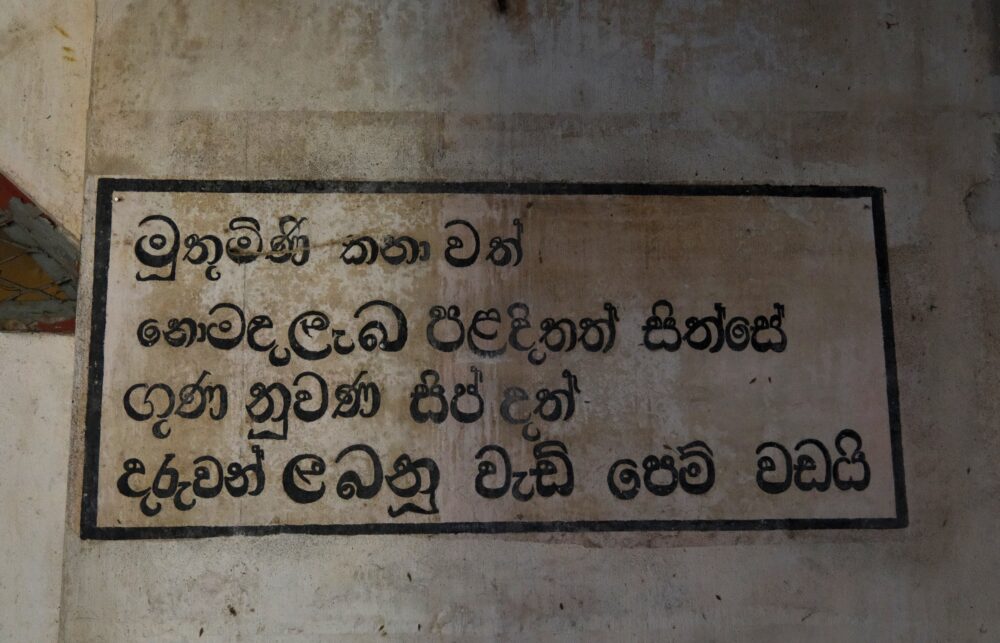 මුතුමිණි කනා වත්
නොමඳ ලැබ පළදිතත් සිත්සේ
ගුණ නුවණ සිප් දත්
දරුවන් ලබනු වැඩි පෙම් වඩයි